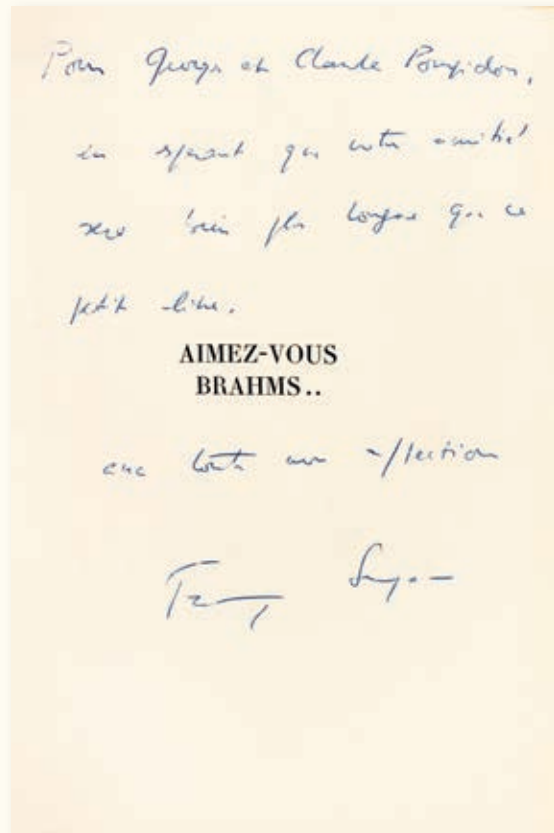 Pour Georges et Claude Pompidou,
en espérant que notre amitié
sera bien plus longue que ce
petit livre.
AIMEZ-VOUS
BRAHMS..
avec toute mon affection
Françoise Sagan